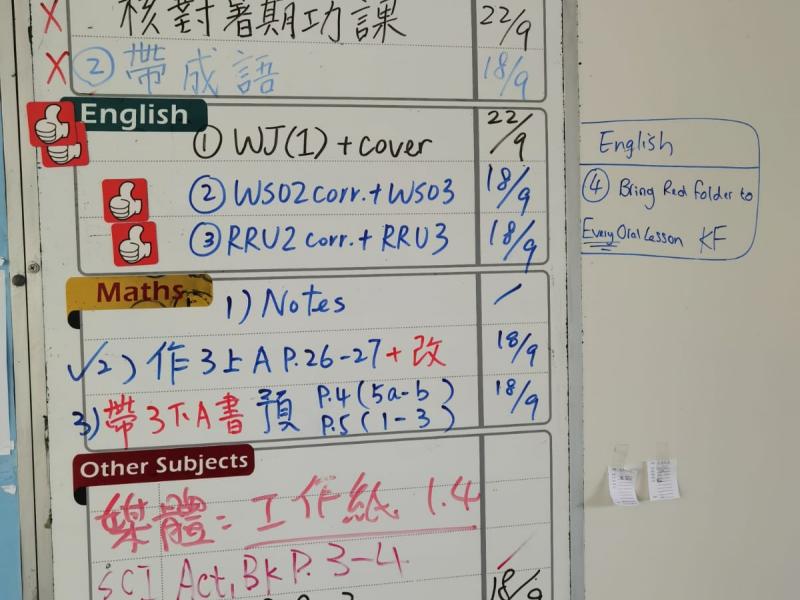 核對暑期功課 22/9
② 帶成語 18/9
English
① WJ(1) + cover 22/9
② WS02 corr. + WS03 18/9
③ RRU2 corr. + RRU3 18/9
Maths
1) Notes /
✓2) 作3上A P.26-27 + 改 18/9
3) 帶3下A書 預 P.4 (5a-b) 18/9
P.5 (1-3)
Other Subjects
媒體: 工作紙 1.4
SCI Act, Bk P. 3-4 /
18/9
English
④ Bring Red Folder to
Every Oral Lesson KF